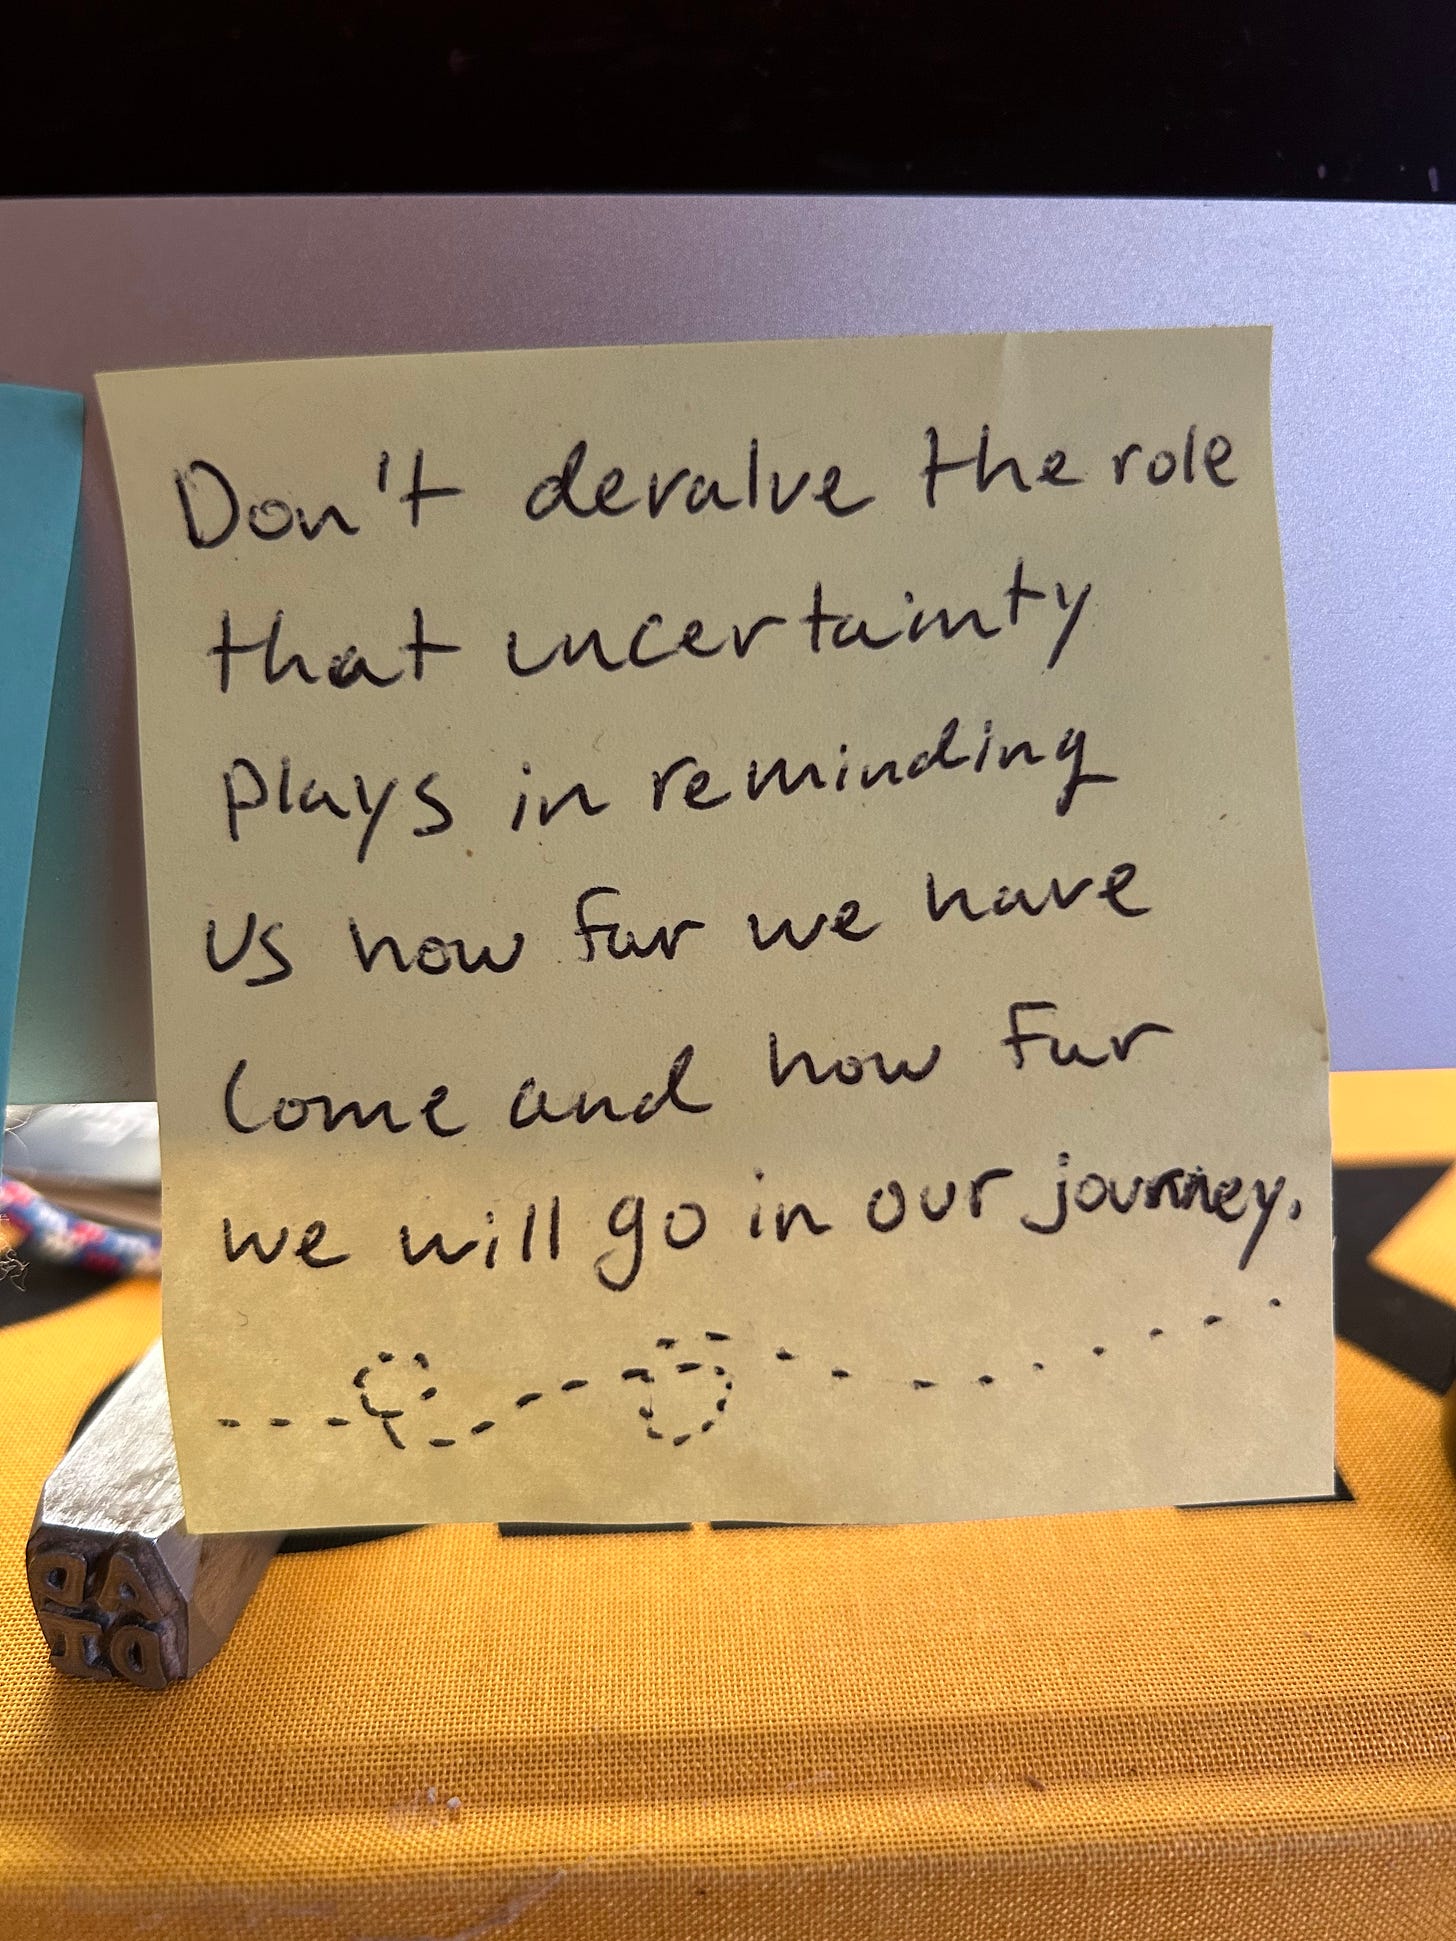 Don't devalue the role
that uncertainty
plays in reminding
us how far we have
come and how far
we will go in our journey.